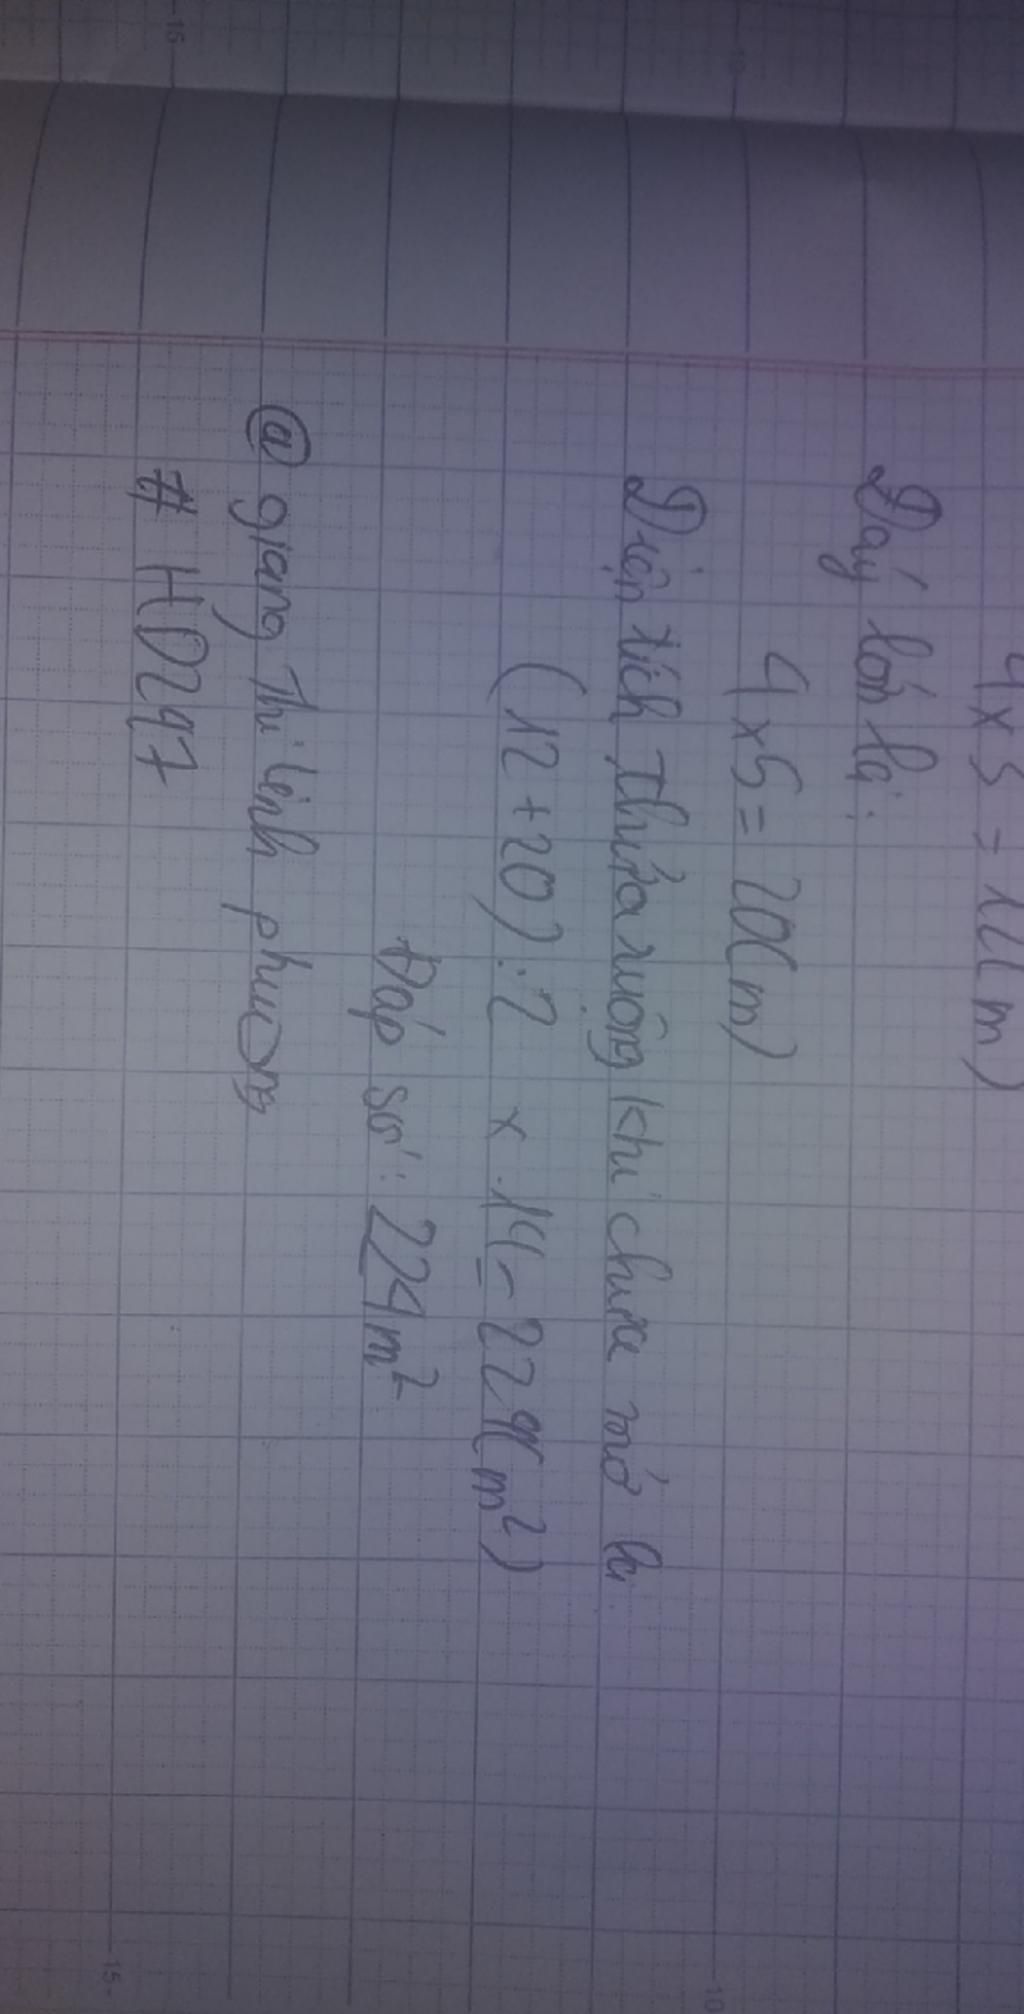 4 x 3 = 12(m)
Đáy lớn là:
4 x 5 = 20(m)
Diện tích thửa ruộng khi chưa mở là:
(12 + 20) : 2 x 14 = 224(m²)
Đáp số: 224m²
@ giang Thi Linh phương
# HD247
15
10
15
10